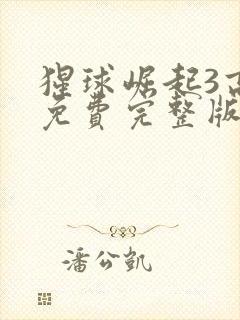 猩球崛起3高
免费完整版
潘公凱